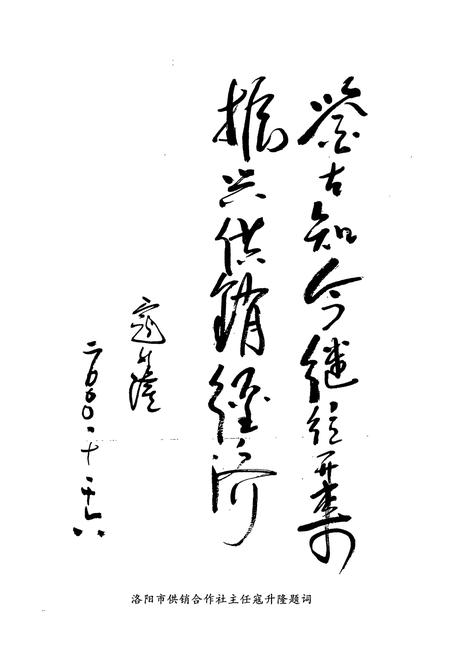 鉴古知今继往开来
振兴供销经济
寇升隆
二〇〇〇.十.十六
洛阳市供销合作社主任寇升隆题词